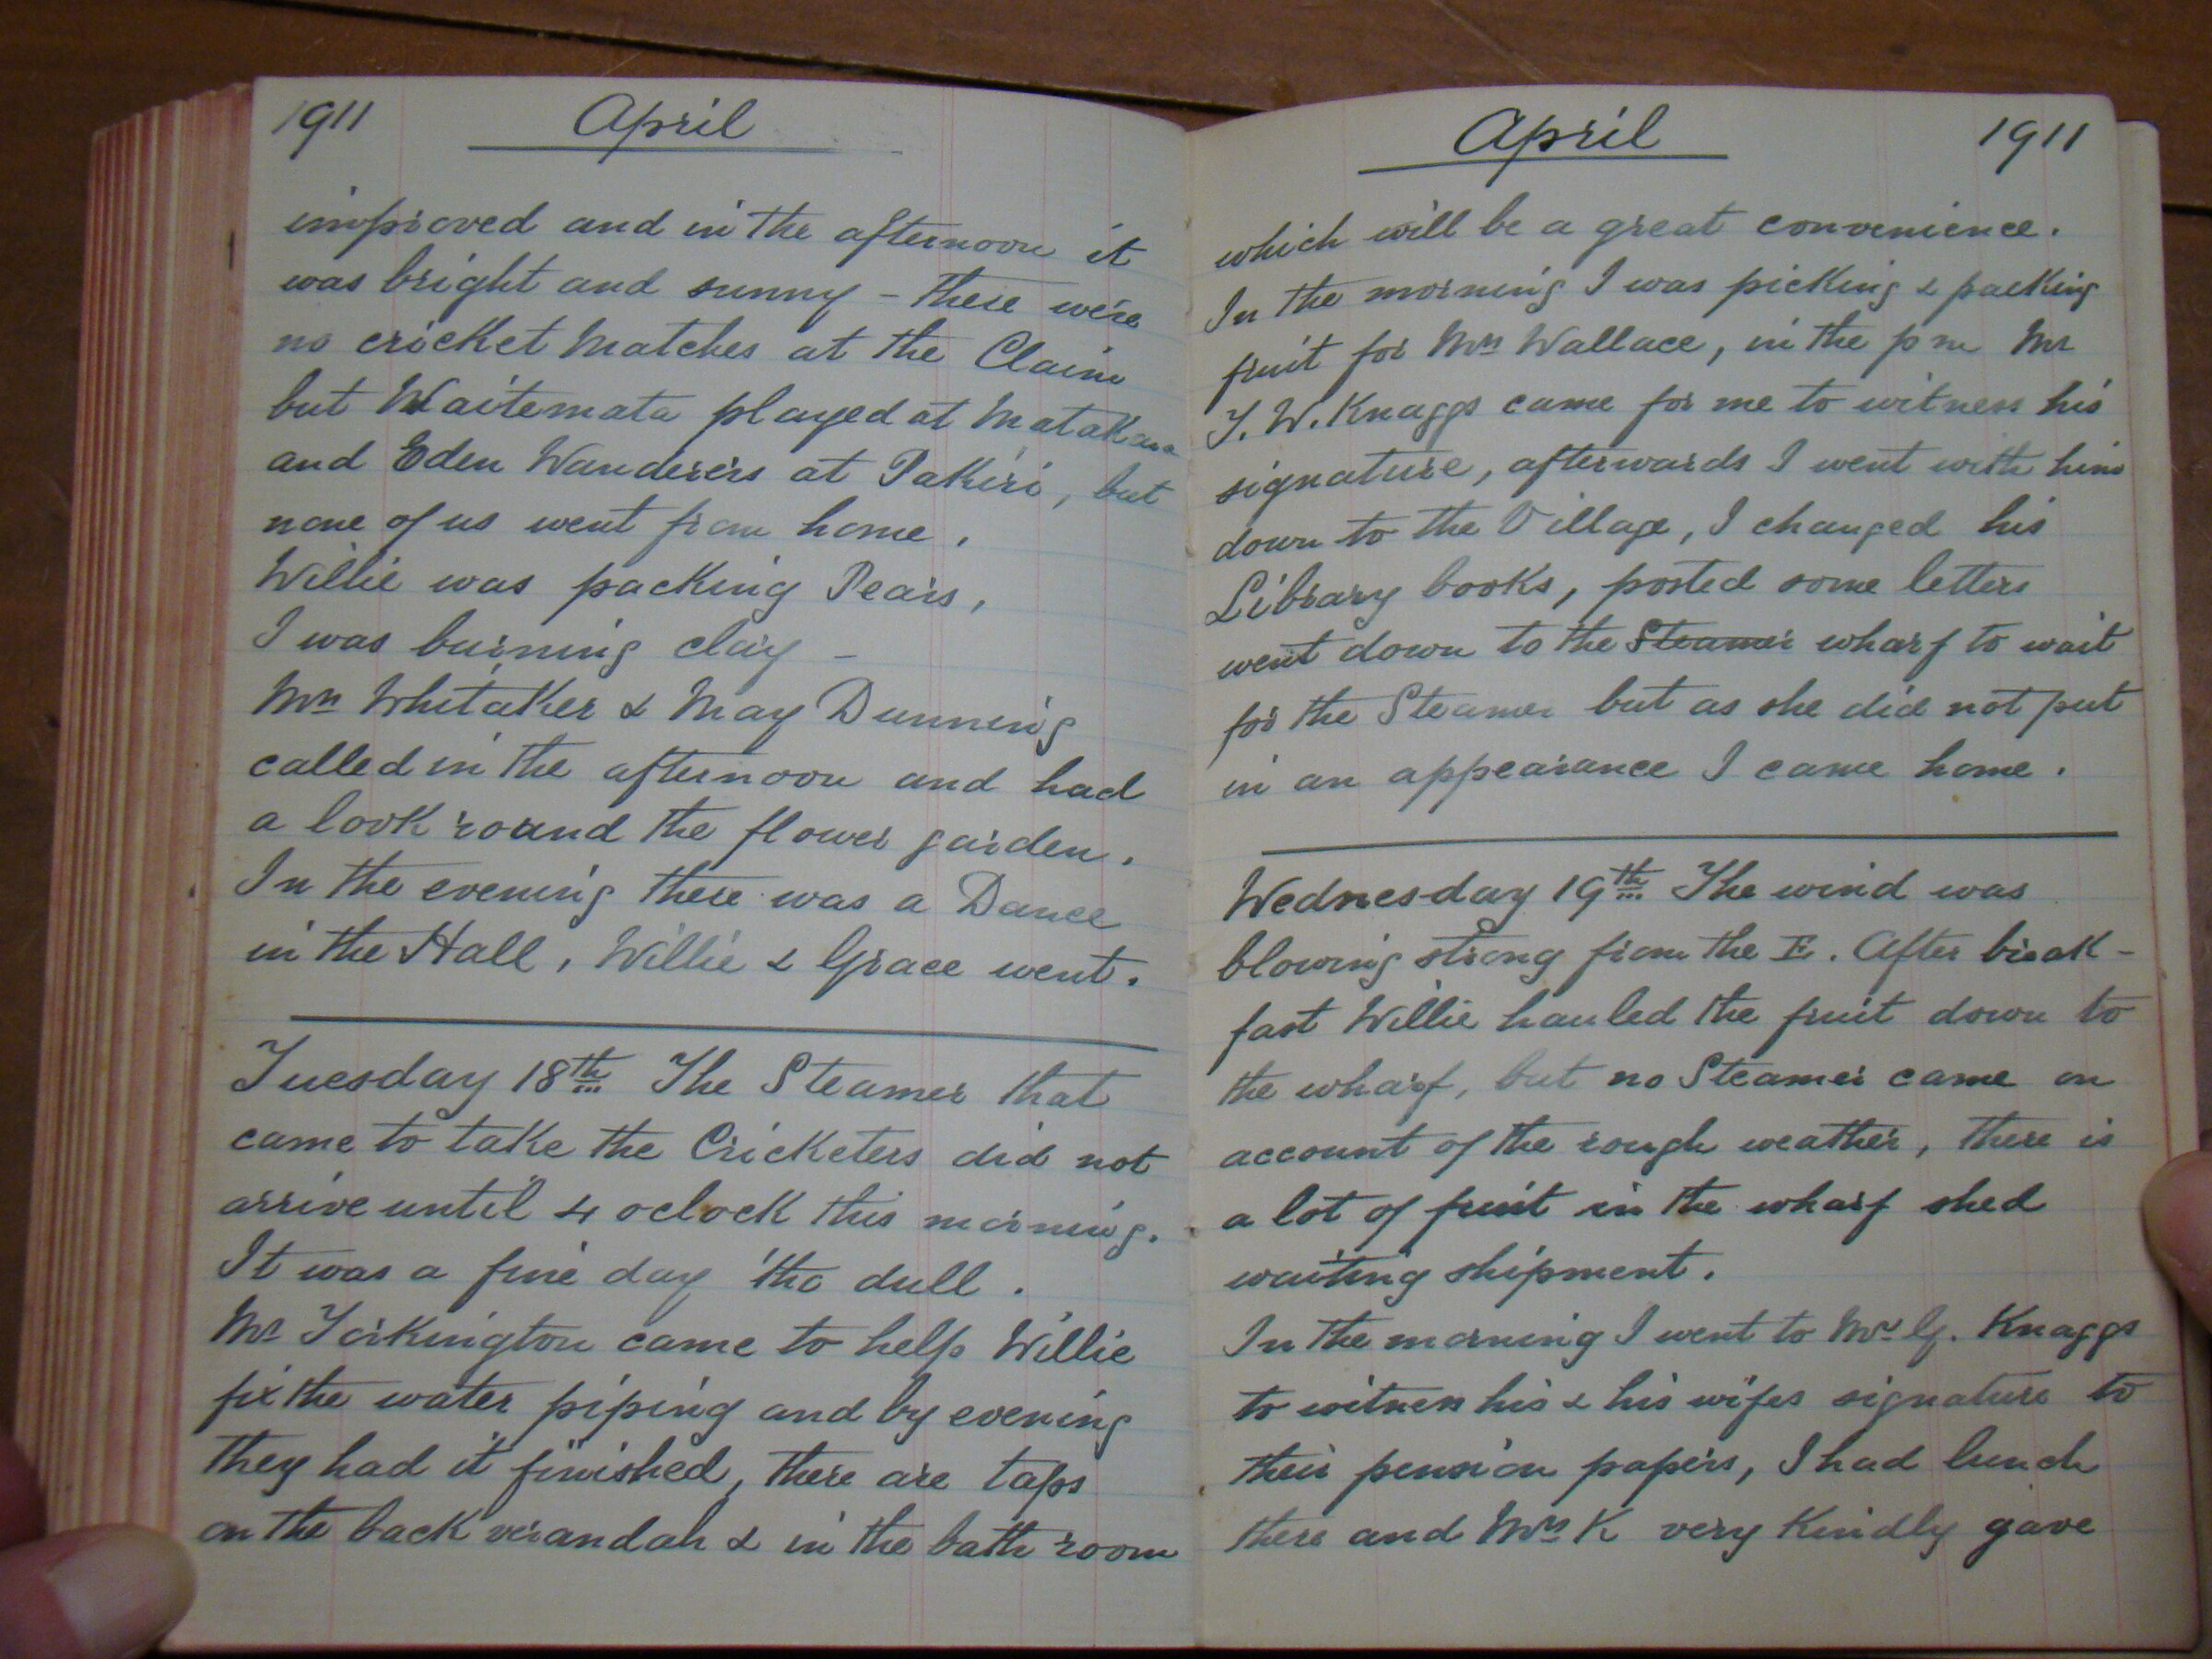 1911 April
improved and in the afternoon it
was bright and sunny – there were
no cricket matches at the Claim
but Waitemata played at Matakana
and Eden Wanderers at Pakiri, but
none of us went from home.
Willie was packing Pears,
I was burning clay –
Mrs Whitaker & May Dunning
called in the afternoon and had
a look round the flower garden.
In the evening there was a Dance
in the Hall, Willie & Grace went.
Tuesday 18th The Steamer that
came to take the Cricketers did not
arrive until 4 oclock this morning.
It was a fine day 'tho dull.
Mr Torkington came to help Willie
fix the water piping and by evening
they had it finished, there are taps
on the back verandah & in the bath room
April 1911
which will be a great convenience.
In the morning I was picking & packing
fruit for Mrs Wallace, in the pm Mr
T. W. Knaggs came for me to witness his
signature, afterwards I went with him
down to the Village, I changed his
Library books, posted some letters
went down to the Steamer wharf to wait
for the Steamer but as she did not put
in an appearance I came home.
Wednesday 19th The wind was
blowing strong from the E. After break-
fast Willie hauled the fruit down to
the wharf, but no Steamer came on
account of the rough weather, there is
a lot of fruit in the wharf shed
waiting shipment.
In the morning I went to Mr G. Knaggs
to witness his & his wifes signature to
their pension papers, I had lunch
there and Mrs K very kindly gave